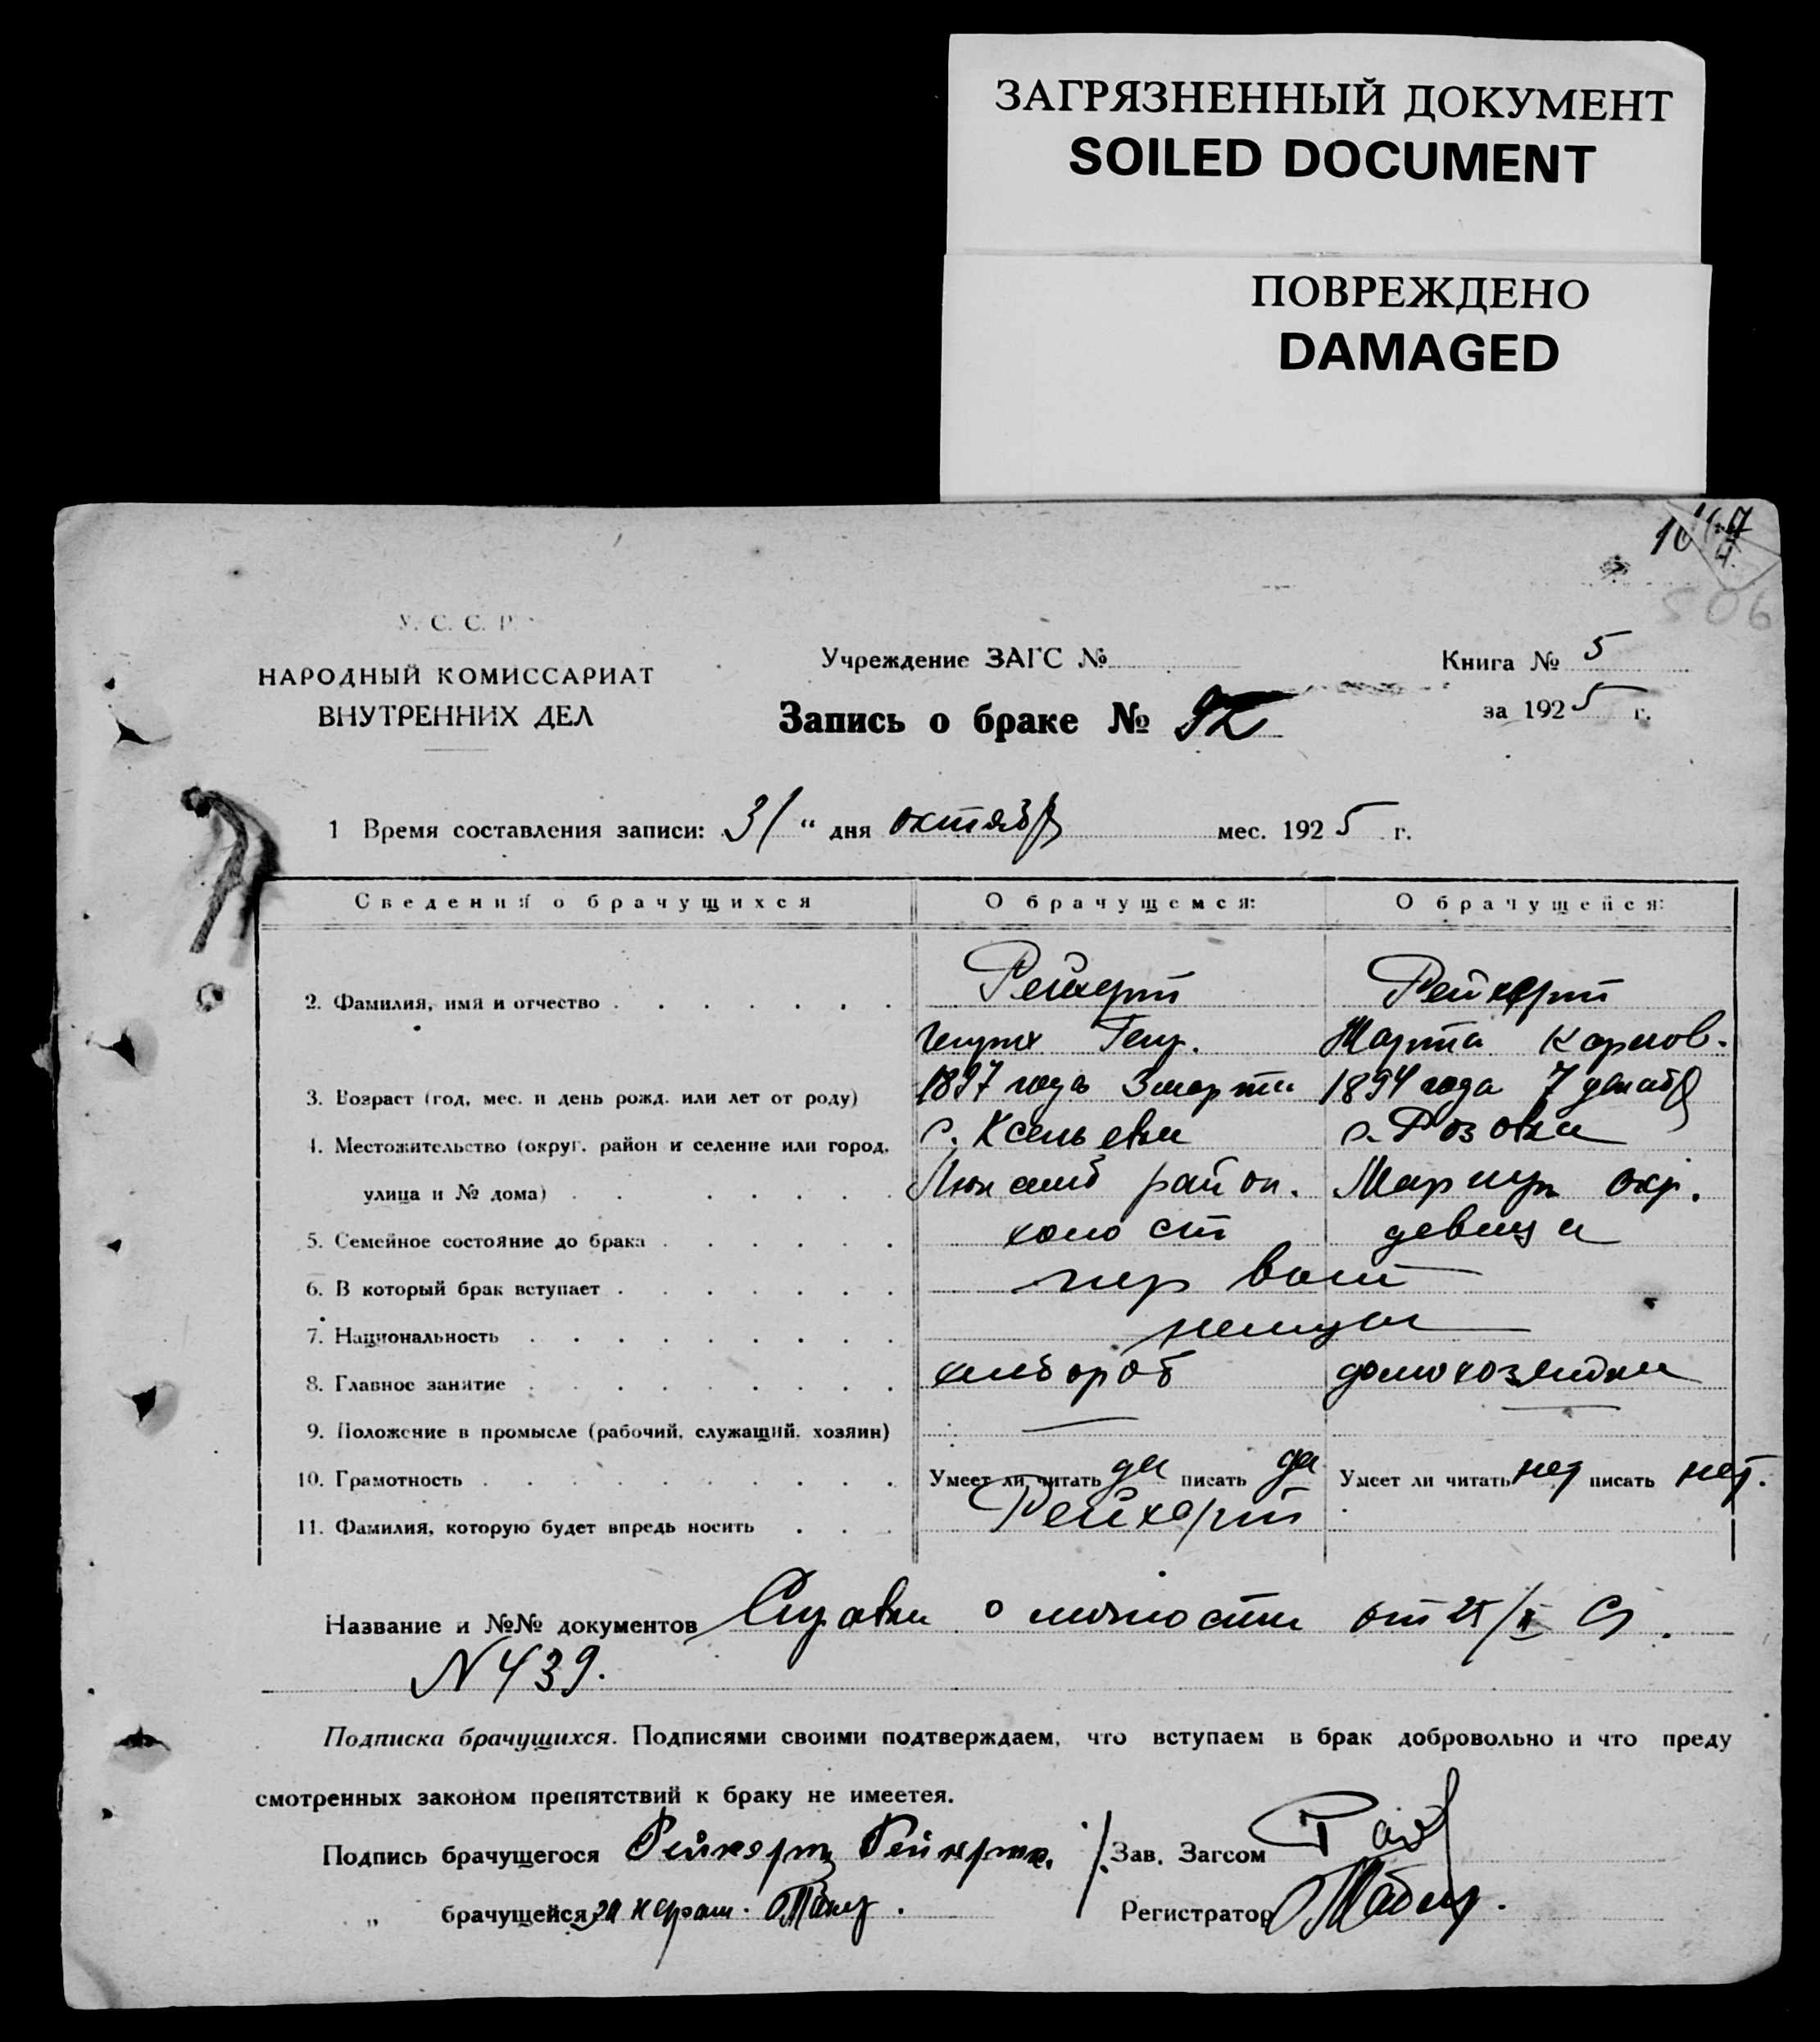 ЗАГРЯЗНЕННЫЙ ДОКУМЕНТ
SOILED DOCUMENT
ПОВРЕЖДЕНО
DAMAGED
506
У. С. С. Р.
НАРОДНЫЙ КОМИССАРИАТ
ВНУТРЕННИХ ДЕЛ
Учреждение ЗАГС №
Книга № 5
Запись о браке № 92
за 1925 г.
1 Время составления записи: 31 " дня октябр мес. 1925 г.
Сведения о брачущихся О брачущемся: О брачущейся:
2. Фамилия, имя и отчество Рейхерт Рейхерт
Генрих Генр. Марта Карлов.
3. Возраст (год, мес. и день рожд. или лет от роду) 1897 года 3 марта 1894 года 7 декабр
4. Местожительство (округ, район и селение или город, с. Ксеньевка с. Розовка
улица и № дома) Люксемб район. Мариуп окр.
5. Семейное состояние до брака холост девица
6. В который брак вступает первый
7. Национальность немцы
8. Главное занятие хлебороб домохозяйка
9. Положение в промысле (рабочий, служащий, хозяин)
10. Грамотность Умеет ли читать да писать да Умеет ли читать нет писать нет.
11. Фамилия, которую будет впредь носить Рейхерт
Название и №№ документов Справка о личности от 25/X Сг.
N 439.
Подписка брачущихся. Подписями своими подтверждаем, что вступаем в брак добровольно и что преду
смотренных законом препятствий к браку не имеетея.
Подпись брачущегося Рейхерт Зав. Загсом
" брачущейся за неграм. Регистратор